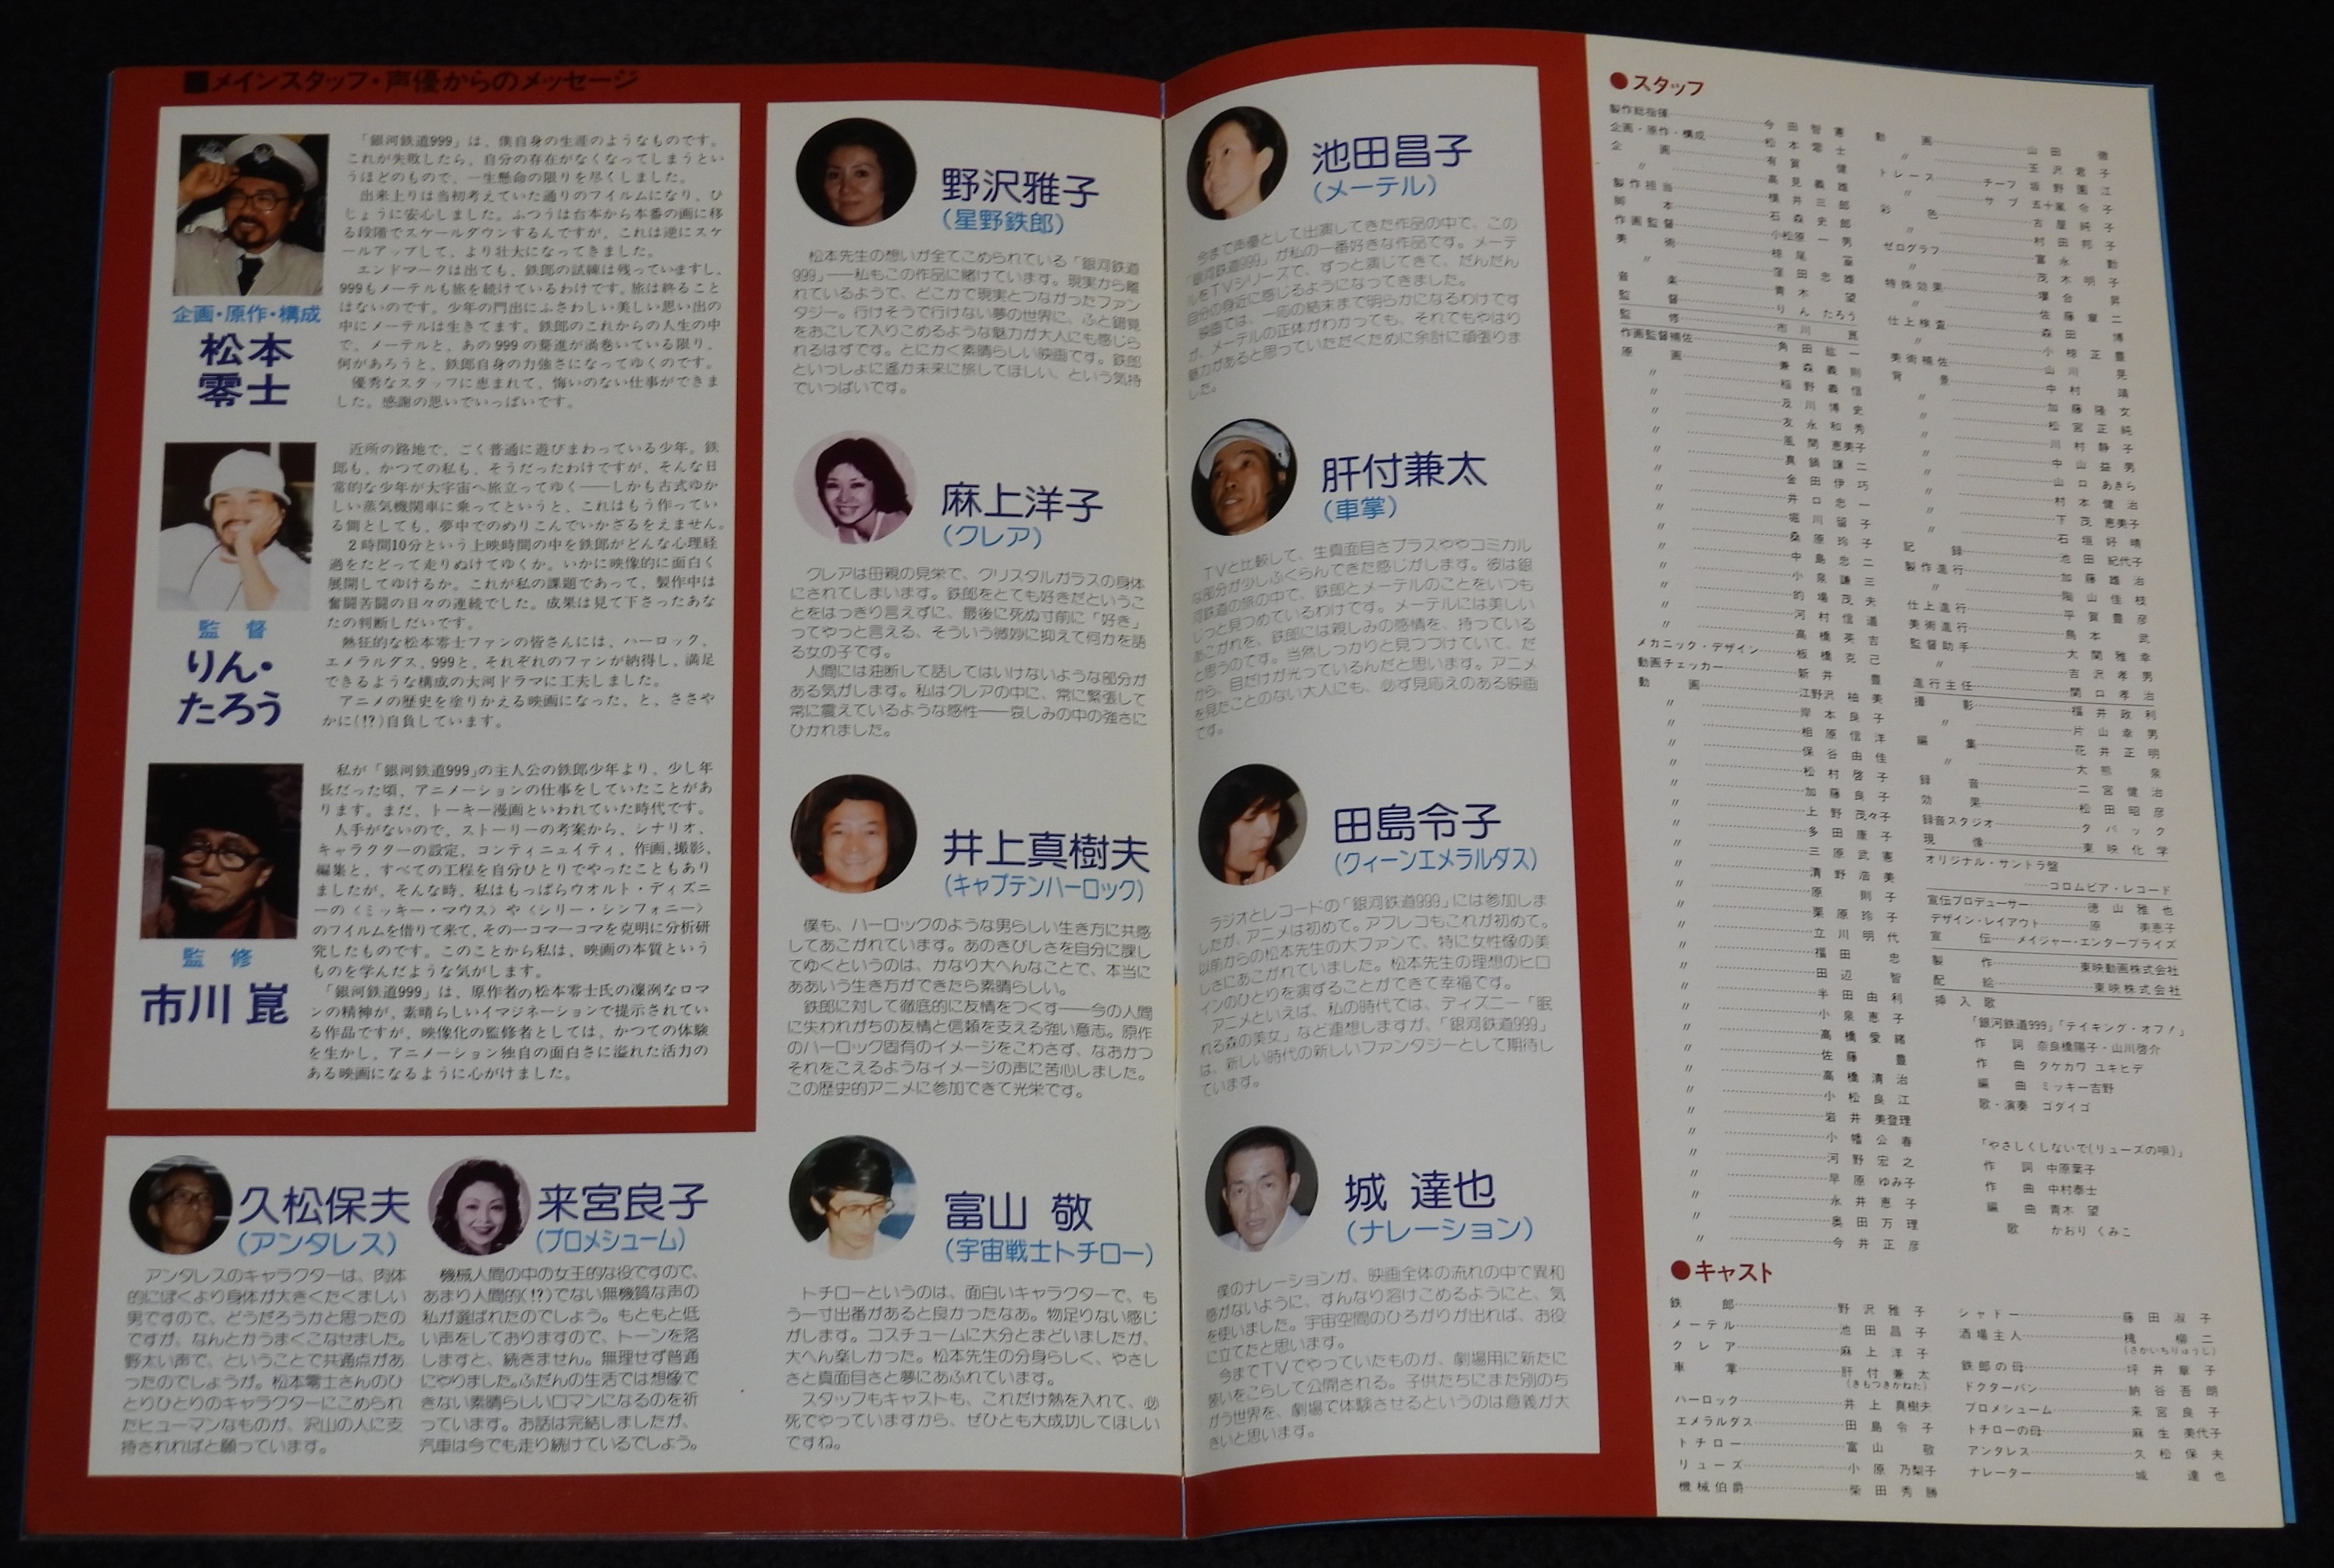 ■メインスタッフ・声優からのメッセージ
企画・原作・構成
松本
零士
「銀河鉄道999」は、僕自身の生涯のようなものです。
これが失敗したら、自分の存在がなくなってしまうとい
うほどのもので、一生懸命の限りを尽くしました。
出来上りは当初考えていた通りのフイルムになり、ひ
じょうに安心しました。ふつうは台本から本番の画に移
る段階でスケールダウンするんですが、これは逆にスケ
ールアップして、より壮大になってきました。
エンドマークは出ても、鉄郎の試練は残っていますし、
999もメーテルも旅を続けているわけです。旅は終ること
はないのです。少年の門出にふさわしい美しい思い出の
中にメーテルは生きてます。鉄郎のこれからの人生の中
で、メーテルと、あの999の驀進が渦巻いている限り、
何があろうと、鉄郎自身の力強さになってゆくのです。
優秀なスタッフに恵まれて、悔いのない仕事ができま
した。感謝の思いでいっぱいです。
監督
りん・
たろう
近所の路地で、ごく普通に遊びまわっている少年。鉄
郎も、かつての私も、そうだったわけですが、そんな日
常的な少年が大宇宙へ旅立ってゆく――しかも古式ゆか
しい蒸気機関車に乗ってというと、これはもう作ってい
る側としても、夢中でのめりこんでいかざるをえません。
2時間10分という上映時間の中を鉄郎がどんな心理経
過をたどって走りぬけてゆくか。いかに映像的に面白く
展開してゆけるか。これが私の課題であって、製作中は
奮闘苦闘の日々の連続でした。成果は見て下さったあな
たの判断しだいです。
熱狂的な松本零士ファンの皆さんには、ハーロック、
エメラルダス、999と、それぞれのファンが納得し、満足
できるような構成の大河ドラマに工夫しました。
アニメの歴史を塗りかえる映画になった、と、ささや
かに(!?)自負しています。
監修
市川 崑
私が「銀河鉄道999」の主人公の鉄郎少年より、少し年
長だった頃、アニメーションの仕事をしていたことがあ
ります。まだ、トーキー漫画といわれていた時代です。
人手がないので、ストーリーの考案から、シナリオ、
キャラクターの設定、コンティニュイティ、作画、撮影、
編集と、すべての工程を自分ひとりでやったこともあり
ましたが、そんな時、私はもっぱらウオルト・ディズニ
ーの〈ミッキー・マウス〉や〈シリー・シンフォニー〉
のフイルムを借りて来て、その一コマ一コマを克明に分析研
究したものです。このことから私は、映画の本質という
ものを学んだような気がします。
「銀河鉄道999」は、原作者の松本零士氏の凜冽なロマ
ンの精神が、素晴らしいイマジネーションで提示されてい
る作品ですが、映像化の監修者としては、かつての体験
を生かし、アニメーション独自の面白さに溢れた活力の
ある映画になるように心がけました。
久松保夫
(アンタレス)
アンタレスのキャラクターは、肉体
的にぼくより身体が大きくたくましい
男ですので、どうだろうかと思ったの
ですが、なんとかうまくこなせました。
野太い声で、ということで共通点があ
ったのでしょうか。松本零士さんのひ
とりひとりのキャラクターにこめられ
たヒューマンなものが、沢山の人に支
持されればと願っています。
来宮良子
(プロメシューム)
機械人間の中の女王的な役ですので、
あまり人間的(!?)でない無機質な声の
私が選ばれたのでしょう。もともと低
い声をしておりますので、トーンを落
しますと、続きません。無理せず普通
にやりました。ふだんの生活では想像で
きない素晴らしいロマンになるのを祈
っています。お話は完結しましたが、
汽車は今でも走り続けているでしょう。
野沢雅子
(星野鉄郎)
松本先生の想いが全てこめられている「銀河鉄道
999」――私もこの作品に賭けています。現実から離
れているようで、どこかで現実とつながったファン
タジー。行けそうで行けない夢の世界に、ふと錯覚
をおこして入りこめるような魅力が大人にも感じら
れるはずです。とにかく素晴らしい映画です。鉄郎
といっしょに遥か未来に旅してほしい、という気持
でいっぱいです。
麻上洋子
(クレア)
クレアは母親の見栄で、クリスタルガラスの身体
にされてしまいます。鉄郎をとても好きだというこ
とをはっきり言えずに、最後に死ぬ寸前に「好き」
ってやっと言える、そういう微妙に抑えて何かを語
る女の子です。
人間には油断して話してはいけないような部分が
ある気がします。私はクレアの中に、常に緊張して
常に震えているような感性――哀しみの中の強さに
ひかれました。
井上真樹夫
(キャプテンハーロック)
僕も、ハーロックのような男らしい生き方に共感
してあこがれています。あのきびしさを自分に課し
てゆくというのは、かなり大へんなことで、本当に
ああいう生き方ができたら素晴らしい。
鉄郎に対して徹底的に友情をつくす――今の人間
に失われがちの友情と信頼を支える強い意志。原作
のハーロック固有のイメージをこわさず、なおかつ
それをこえるようなイメージの声に苦心しました。
この歴史的アニメに参加できて光栄です。
富山 敬
(宇宙戦士トチロー)
トチローというのは、面白いキャラクターで、も
う一寸出番があると良かったなあ。物足りない感じ
がします。コスチュームに大分とまどいましたが、
大へん楽しかった。松本先生の分身らしく、やさし
さと真面目さと夢にあふれています。
スタッフもキャストも、これだけ熱を入れて、必
死でやっていますから、ぜひとも大成功してほしい
ですね。
池田昌子
(メーテル)
今まで声優として出演してきた作品の中で、この
「銀河鉄道999」が私の一番好きな作品です。メーテ
ルをTVシリーズで、ずっと演じてきて、だんだん
自分の身近に感じるようになってきました。
映画では、一応の結末まで明らかになるわけです
が、メーテルの正体がわかっても、それでもやはり
魅力があると思っていただくために余計に頑張りま
した。
肝付兼太
(車掌)
TVと比較して、生真面目さプラスややコミカル
な部分が少しふくらんできた感じがします。彼は銀
河鉄道の旅の中で、鉄郎とメーテルのことをいつも
じっと見つめているわけです。メーテルには美しい
あこがれを、鉄郎には親しみの感情を、持っている
と思うのです。当然しっかりと見つづけていて、だ
から、目だけが光っているんだと思います。アニメ
を見たことのない大人にも、必ず見応えのある映画
です。
田島令子
(クィーンエメラルダス)
ラジオとレコードの「銀河鉄道999」には参加しま
したが、アニメは初めて。アフレコもこれが初めて。
以前からの松本先生の大ファンで、特に女性像の美
しさにあこがれていました。松本先生の理想のヒロ
インのひとりを演ずることができて幸福です。
アニメといえば、私の時代では、ディズニー「眠
れる森の美女」など連想しますが、「銀河鉄道999」
は、新しい時代の新しいファンタジーとして期待し
ています。
城 達也
(ナレーション)
僕のナレーションが、映画全体の流れの中で異和
感がないように、すんなり溶けこめるようにと、気
を使いました。宇宙空間のひろがりが出れば、お役
に立てたと思います。
今までTVでやっていたものが、劇場用に新たに
装いをこらして公開される。子供たちにまた別のち
がう世界を、劇場で体験させるというのは意義が大
きいと思います。
●スタッフ
製作総指揮 今田智憲
企画・原作・構成 松本零士
企画 有賀健
〃 高見義雄
製作担当 横井三郎
脚本 石森史郎
作画監督 小松原一男
美術 椋尾篁
〃 窪田忠雄
音楽 青木望
監督 りんたろう
監修 市川崑
作画監督補佐 角田紘一
原画 兼森義則
〃 稲野義信
〃 及川博史
〃 友永和秀
〃 風間恵美子
〃 真鍋譲二
〃 金田伊功
〃 井口忠一
〃 堀川留子
〃 桑原玲子
〃 中島忠二
〃 小泉謙三
〃 的場茂夫
〃 河村信道
〃 高橋英吉
メカニック・デザイン 板橋克己
動画チェッカー 新井豊
動画 江野沢柚美
〃 岸本良子
〃 相原信洋
〃 保谷由佳
〃 松村啓子
〃 加藤良子
〃 上野茂々子
〃 多田康子
〃 三原武憲
〃 清野浩美
〃 原則子
〃 栗原玲子
〃 立川明代
〃 福田忠
〃 田辺智
〃 半田由利
〃 小泉恵子
〃 高橋愛緒
〃 佐藤豊
〃 高橋清治
〃 小松良江
〃 岩井美登理
〃 小幡公春
〃 河野宏之
〃 早原ゆみ子
〃 永井恵子
〃 奥田万理
〃 今井正彦
動画 山田徹
〃 玉沢君子
トレース チーフ 坂野園江
〃 サブ 五十嵐令子
彩色 古屋純子
〃 村田邦子
ゼログラフ 富永勤
〃 茂木明子
特殊効果 堰合昇
〃 佐藤章二
仕上検査 森田博
〃 小椋正豊
美術補佐 山川晃
背景 中村靖
〃 加藤隆文
〃 松宮正純
〃 川村静子
〃 中山益男
〃 山口あきら
〃 村本健治
〃 下茂恵美子
〃 石垣好晴
記録 池田紀代子
製作進行 加藤雄治
〃 陶山佳枝
仕上進行 平賀豊彦
美術進行 鳥本武
監督助手 大関雅幸
〃 吉沢孝男
進行主任 関口孝治
撮影 福井政利
〃 片山幸男
編集 花井正明
〃 大熊泉
録音 二宮健治
効果 松田昭彦
録音スタジオ タバック
現像 東映化学
オリジナル・サントラ盤
コロムビア・レコード
宣伝プロデューサー 徳山雅也
デザイン・レイアウト 原美恵子
宣伝 メイジャー・エンタープライズ
製作 東映動画株式会社
配給 東映株式会社
挿入歌
「銀河鉄道999」「テイキング・オフ!」
作詞 奈良橋陽子・山川啓介
作曲 タケカワ ユキヒデ
編曲 ミッキー吉野
歌・演奏 ゴダイゴ
「やさしくしないで(リューズの唄)」
作詞 中原葉子
作曲 中村泰士
編曲 青木 望
歌 かおり くみこ
●キャスト
鉄郎 野沢雅子
メーテル 池田昌子
クレア 麻上洋子
車掌 肝付兼太
(きもつきかねた)
ハーロック 井上真樹夫
エメラルダス 田島令子
トチロー 富山敬
リューズ 小原乃梨子
機械伯爵 柴田秀勝
シャドー 藤田淑子
酒場主人 槐柳二
(さかいちりゅうじ)
鉄郎の母 坪井章子
ドクターバン 納谷吾朗
プロメシューム 来宮良子
トチローの母 麻生美代子
アンタレス 久松保夫
ナレーター 城達也